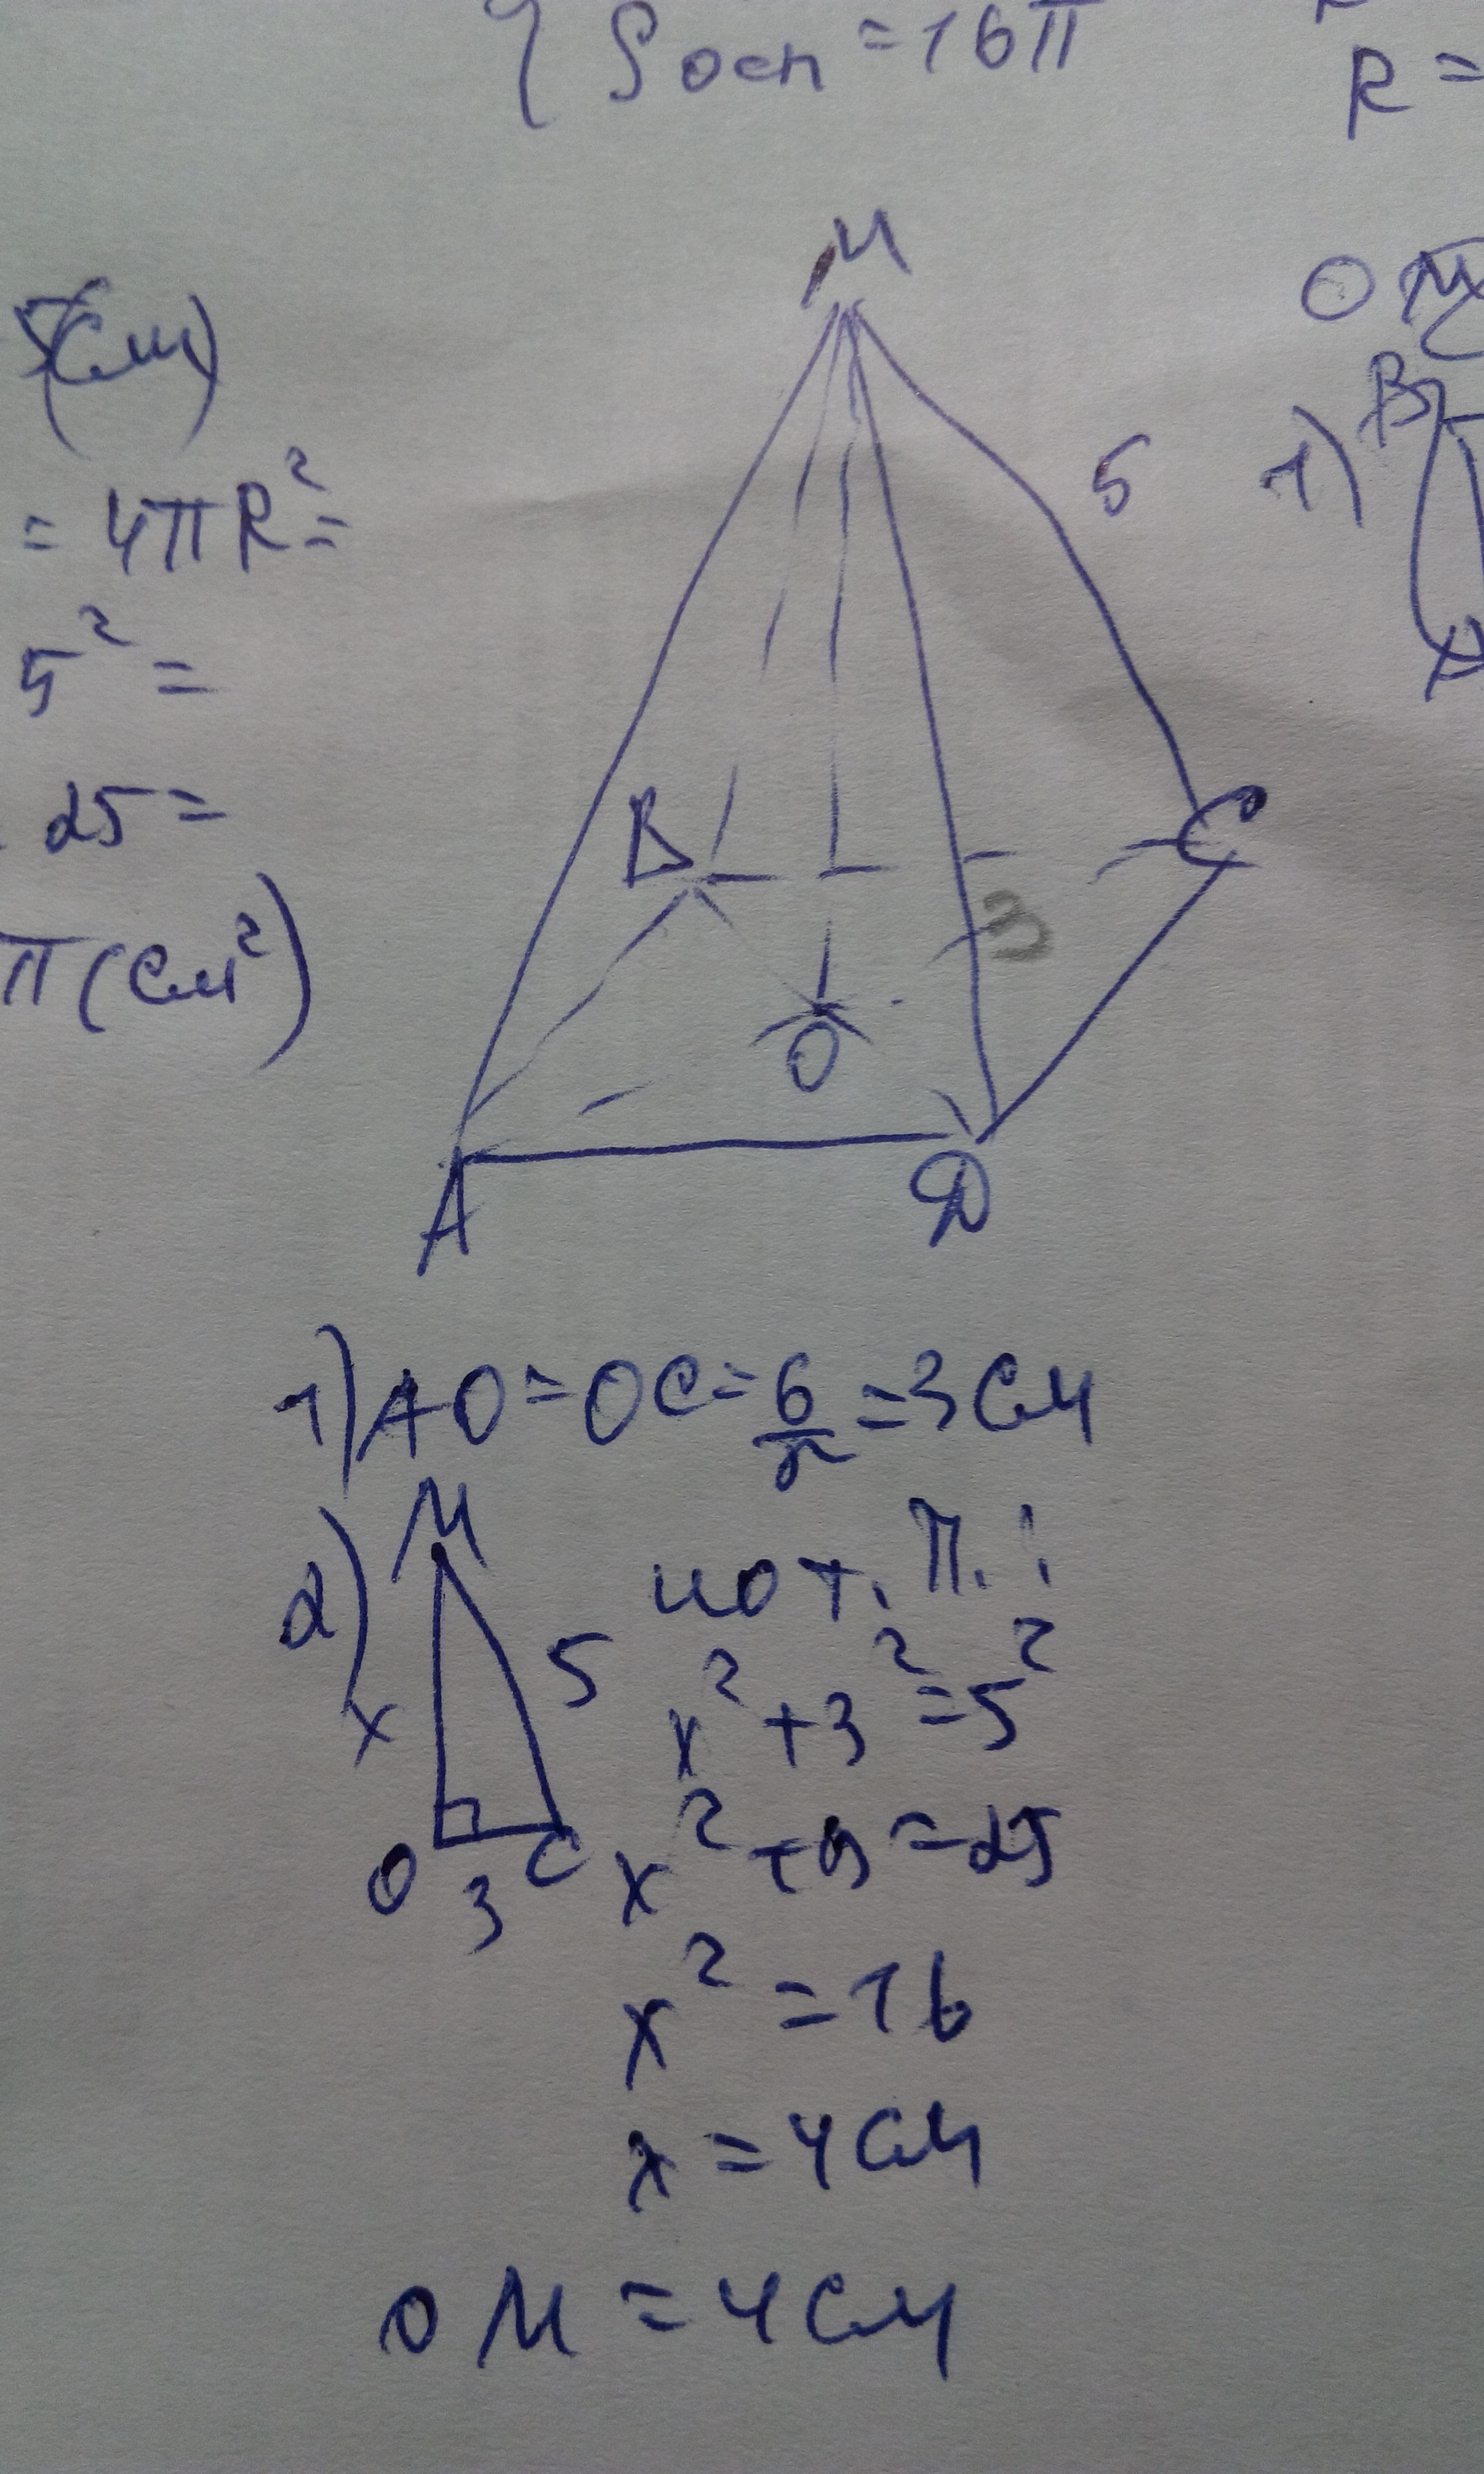 { Sосн = 16π
R =
5(см)
= 4πR² =
5² =
25 =
π(см²)
M
5
B
C
3
O
A
D
1)
B
A
1) AO = OC = 6/2 = 3 см
2)
M
x
5
O
3
C
по т. П.:
x² + 3² = 5²
x² + 9 = 25
x² = 16
x = 4 см
OM = 4 см